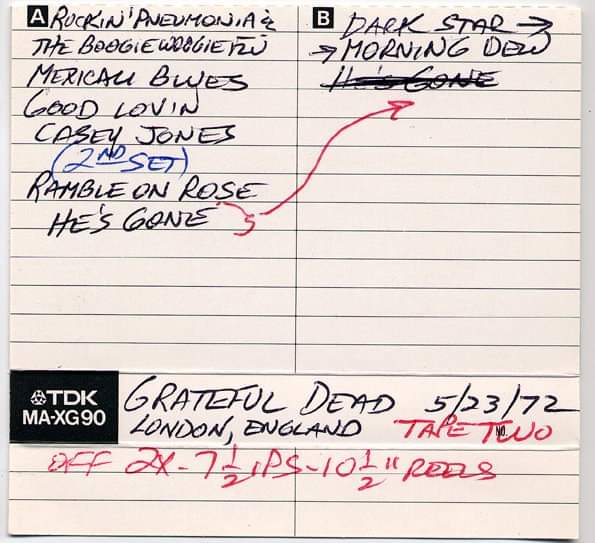 A ROCKIN' PNEUMONIA &
THE BOOGIE WOOGIE FLU
MERICAN BLUES
GOOD LOVIN
CASEY JONES
(2ND SET)
RAMBLE ON ROSE
HE'S GONE
B DARK STAR →
→ MORNING DEW
HE'S GONE
TDK
MA-XG90
GRATEFUL DEAD 5/23/72
LONDON, ENGLAND TAPE TWO
NO.
OFF 2X-7 1/2 IPS-10 1/2" REELS